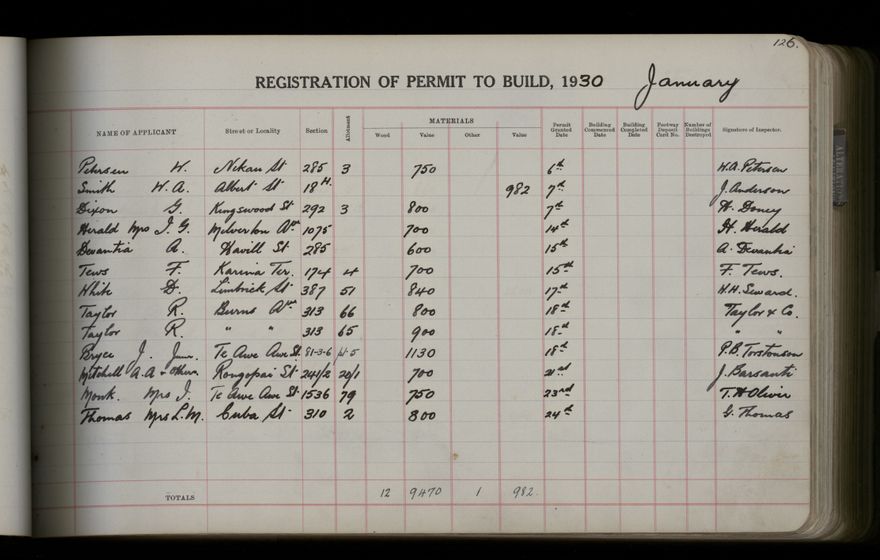 126.
REGISTRATION OF PERMIT TO BUILD, 1930 January
NAME OF APPLICANT Street or Locality Section Allotment MATERIALS Wood Value Other Value Permit Granted Date Building Commenced Date Building Completed Date Footway Deposit Card No. Number of Buildings Destroyed Signature of Inspector.
Petersen H. Nikau St 285 3 750 6th H.A. Petersen
Smith W.A. Albert St 18 H. 982 7th J. Anderson
Dixon G. Kingswood St 292 3 800 7th H. Doney
Herald Mrs I.G. Milverton Ave 1075 700 14th H. Herald
Devantia A. Havill St 285 600 15th A. Devantia
Tews F. Karina Ter. 174 4 700 15th F. Tews.
White D. Limbrick St 387 51 840 17th H.H. Seward.
Taylor R. Burns Ave 313 66 800 18th Taylor & Co.
Taylor R. " " 313 65 900 18th " "
Bryce J. Junr. Te Awe Awe St. 81-3-6 pt 5 1130 18th P.B. Torstonson
Mitchell A.A. & Others. Rongopai St 241/2 20/1 700 21st J. Barsanti
Monk. Mrs I. Te Awe Awe St 1536 79 750 23rd T.H Oliver
Thomas Mrs L.M. Cuba St 310 2 800 24th G. Thomas
TOTALS 12 9470 1 982.
ALTERATION